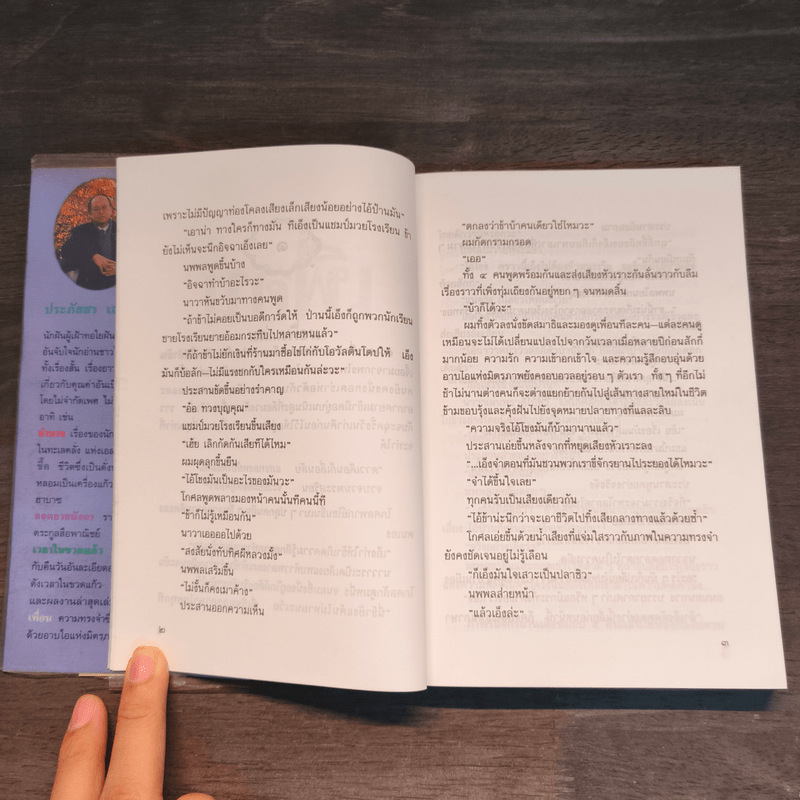 ประภัสสร
นักฝันผู้เฝ้าทอใยฝัน
อันจับใจนักอ่านชาว
ทั้งเรื่องสั้น เรื่องยาว
เกี่ยวกับคุณค่าอัน
โดยไม่จำกัดเพศ
อาทิ เช่น
เรื่องของนัก
ในทะเลคลั่ง แห่งเอล
ชี้ค ชีวิตซึ่งเป็นดั่ง
หลอมเป็นเครื่องแก้ว
ฮาบาช
ลอดลายมังกร รา
ตระกูลสือพาณิชย์
เวลาในขวดแก้ว
กับคืนวันอันละเอียดอ
ดั่งเวลาในขวดแก้ว
และผลงานล่าสุดเล่
เพื่อน ความทรงจำ
ด้วยอาบไอแห่งมิตรภ
เพราะไม่มีปัญญาท่องโคลงเสียงเล็กเสียงน้อยอย่างไอ้ป้านมัน"
"เอาน่า ทางใครก็ทางมัน ทีเอ็งเป็นแชมป์มวยโรงเรียน ข้า
ยังไม่เห็นจะนึกอิจฉาเอ็งเลย"
นพพลพูดขึ้นบ้าง
"อิจฉาทำบ้าอะไรวะ"
นาวาหันขวับมาทางคนพูด
"ถ้าข้าไม่คอยเป็นบอดีการ์ดให้ ป่านนี้เอ็งก็ถูกพวกนักเรียน
ชายโรงเรียนยายอ้อมกระทืบไปหลายหนแล้ว"
"ก็ถ้าข้าไม่ยักเงินที่ร้านมาซื้อไข่ไก่กับโอวัลตินโดปให้ เอ็ง
มันก็ข้อลัก—ไม่มีแรงชกกับใครเหมือนกันล่ะวะ"
ประสานขัดขึ้นอย่างรำคาญ
"อ้อ ทวงบุญคุณ"
แชมป์มวยโรงเรียนขึ้นเสียง
"เฮ้ย เลิกกัดกันเสียทีได้ไหม"
ผมผุดลุกขึ้นยืน
"ไอ้โขงมันเป็นอะไรของมันวะ"
โกศลพูดพลางมองหน้าคนนั้นทีคนนี้ที
"ข้าก็ไม่รู้เหมือนกัน"
นาวาเออออไปด้วย
"สงสัยนั่งทับทิศผีหลวงมั้ง"
นพพลเสริมขึ้น
"ไม่งั้นก็คงเมาค้าง"
ประสานออกความเห็น
๒
"ตกลงว่าข้าบ้าคนเดียวใช่ไหมวะ"
ผมกัดกรามกรอด
"เออ"
ทั้ง ๔ คนพูดพร้อมกันและส่งเสียงหัวเราะกันลั่นราวกับลืม
เรื่องราวที่เพิ่งทุ่มเถียงกันอยู่หยก ๆ จนหมดสิ้น
"บ้าก็ได้วะ"
ผมทิ้งตัวลงนั่งขัดสมาธิและมองดูเพื่อนทีละคน—แต่ละคนดู
เหมือนจะไม่ได้เปลี่ยนแปลงไปจากวันเวลาเมื่อหลายปีก่อนสักกี่
มากน้อย ความรัก ความเข้าอกเข้าใจ และความรู้สึกอบอุ่นด้วย
อาบไอแห่งมิตรภาพยังคงอบอวลอยู่รอบ ๆ ตัวเรา ทั้ง ๆ ที่อีกไม่
ช้าไม่นานต่างคนก็จะต่างแยกย้ายกันไปสู่เส้นทางสายใหม่ในชีวิต
ข้ามขอบรุ้งและคุ้งฝันไปยังจุดหมายปลายทางที่แลละลิบ
"ความจริงไอ้โขงมันก็บ้ามานานแล้ว"
ประสานเอ่ยขึ้นหลังจากที่หยุดเสียงหัวเราะลง
"...เอ็งจำตอนที่มันชวนพวกเราขี่จักรยานไประยองได้ไหมวะ"
"จำได้ขึ้นใจเลย"
ทุกคนรับเป็นเสียงเดียวกัน
"ไอ้ข้าน่ะนึกว่าจะเอาชีวิตไปทิ้งเสียกลางทางแล้วด้วยซ้ำ"
โกศลเอ่ยขึ้นด้วยน้ำเสียงที่แจ่มใสราวกับภาพในความทรงจำ
ยังคงชัดเจนอยู่ไม่รู้เลือน
"ก็เอ็งมันใจเสาะเป็นปลาซิว"
นพพลส่ายหน้า
"แล้วเอ็งล่ะ"
๓